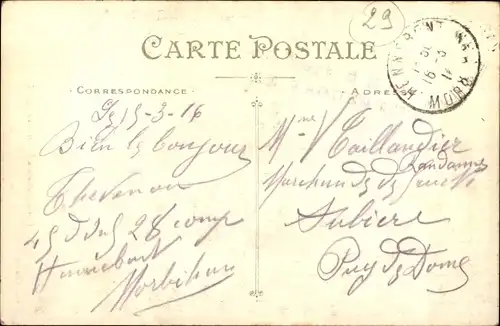 29
CARTE POSTALE
CORRESPONDANCE
ADRE
HENNEBONT
MORB
15-3-16
Bien le bonjour
Thevenon
28 comp
Hennebont
Morbihan
Mme Vve Taillandier
Marchande de
Aubière
Puy de Dome